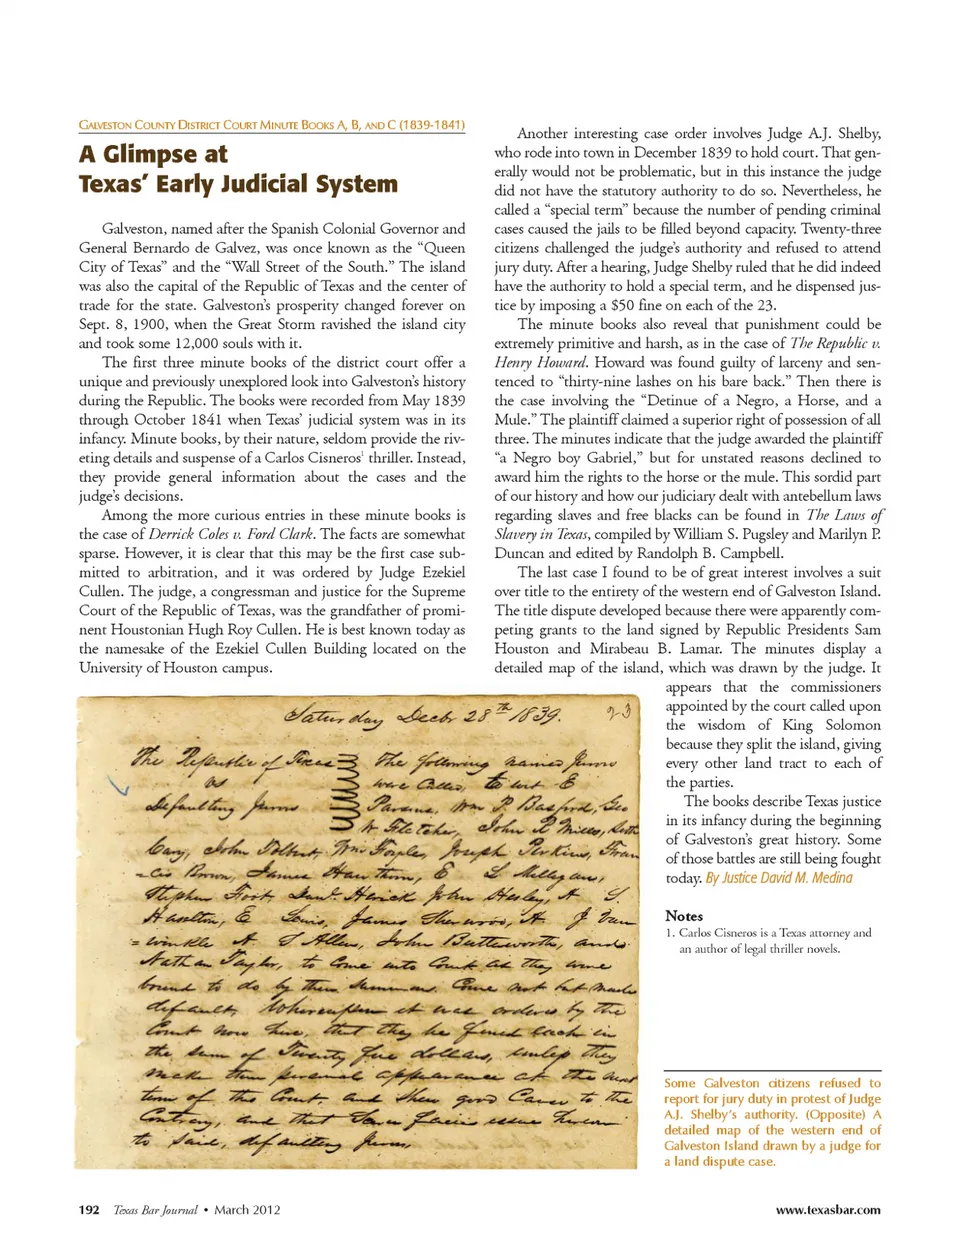 GALVESTON COUNTY DISTRICT COURT MINUTE BOOKS A, B, AND C (1839-1841)
A Glimpse at
Texas’ Early Judicial System
Galveston, named after the Spanish Colonial Governor and
General Bernardo de Galvez, was once known as the “Queen
City of Texas” and the “Wall Street of the South.” The island
was also the capital of the Republic of Texas and the center of
trade for the state. Galveston’s prosperity changed forever on
Sept. 8, 1900, when the Great Storm ravished the island city
and took some 12,000 souls with it.
The first three minute books of the district court offer a
unique and previously unexplored look into Galveston’s history
during the Republic. The books were recorded from May 1839
through October 1841 when Texas’ judicial system was in its
infancy. Minute books, by their nature, seldom provide the riv-
eting details and suspense of a Carlos Cisneros¹ thriller. Instead,
they provide general information about the cases and the
judge’s decisions.
Among the more curious entries in these minute books is
the case of Derrick Coles v. Ford Clark. The facts are somewhat
sparse. However, it is clear that this may be the first case sub-
mitted to arbitration, and it was ordered by Judge Ezekiel
Cullen. The judge, a congressman and justice for the Supreme
Court of the Republic of Texas, was the grandfather of promi-
nent Houstonian Hugh Roy Cullen. He is best known today as
the namesake of the Ezekiel Cullen Building located on the
University of Houston campus.
Another interesting case order involves Judge A.J. Shelby,
who rode into town in December 1839 to hold court. That gen-
erally would not be problematic, but in this instance the judge
did not have the statutory authority to do so. Nevertheless, he
called a “special term” because the number of pending criminal
cases caused the jails to be filled beyond capacity. Twenty-three
citizens challenged the judge’s authority and refused to attend
jury duty. After a hearing, Judge Shelby ruled that he did indeed
have the authority to hold a special term, and he dispensed jus-
tice by imposing a $50 fine on each of the 23.
The minute books also reveal that punishment could be
extremely primitive and harsh, as in the case of The Republic v.
Henry Howard. Howard was found guilty of larceny and sen-
tenced to “thirty-nine lashes on his bare back.” Then there is
the case involving the “Detinue of a Negro, a Horse, and a
Mule.” The plaintiff claimed a superior right of possession of all
three. The minutes indicate that the judge awarded the plaintiff
“a Negro boy Gabriel,” but for unstated reasons declined to
award him the rights to the horse or the mule. This sordid part
of our history and how our judiciary dealt with antebellum laws
regarding slaves and free blacks can be found in The Laws of
Slavery in Texas, compiled by William S. Pugsley and Marilyn P.
Duncan and edited by Randolph B. Campbell.
The last case I found to be of great interest involves a suit
over title to the entirety of the western end of Galveston Island.
The title dispute developed because there were apparently com-
peting grants to the land signed by Republic Presidents Sam
Houston and Mirabeau B. Lamar. The minutes display a
detailed map of the island, which was drawn by the judge. It
appears that the commissioners
appointed by the court called upon
the wisdom of King Solomon
because they split the island, giving
every other land tract to each of
the parties.
The books describe Texas justice
in its infancy during the beginning
of Galveston’s great history. Some
of those battles are still being fought
today. By Justice David M. Medina
Notes
1. Carlos Cisneros is a Texas attorney and
an author of legal thriller novels.
Saturday Decbr 28th 1839. 23
The Republic of Texas The following named Jurors
vs were Called, to wit E
Defaulting Jurors Parsons, Wm P. Basford, Geo
W Fletcher, John P Mills, Seth
Cary, John Tolbert, Wm Joseph Perkins, Fran
=cis Brown, James Hawthorn, E L Millegan,
Stephen Foot Danl. Herick John Hesley, A S.
Haselton, E Lewis, James Sherwood, A J Van
=winkle A S Allen, John Butterworth, and
Nathan Taylor, to Come into Court as they were
bound to do by their Summons, Come not but made
default, Whereupon it was ordered by the
Court now here, that they be fined each in
the sum of Twenty five dollars, unless they
make their personal appearance at the next
term of this Court, and shew good Cause to the
Contrary, and that issue hereon
to said, defaulting Jurors,
Some Galveston citizens refused to
report for jury duty in protest of Judge
A.J. Shelby’s authority. (Opposite) A
detailed map of the western end of
Galveston Island drawn by a judge for
a land dispute case.
192 Texas Bar Journal • March 2012
www.texasbar.com